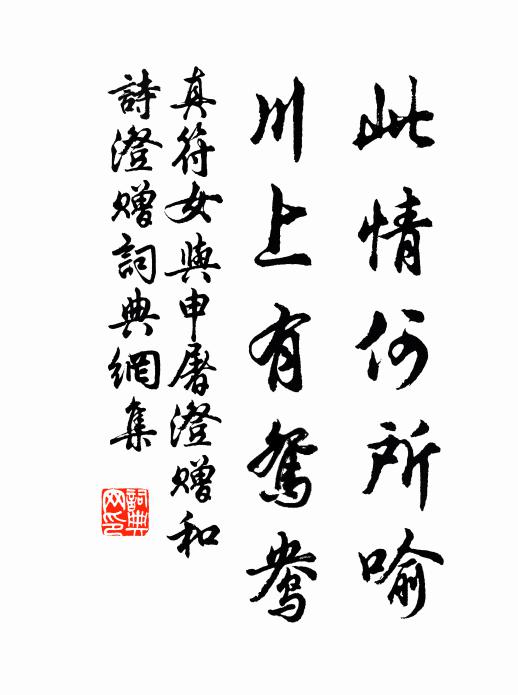 此情何所喻
川上有鴛鴦
真符女與申屠澄贈和
詩澄贈詞典網集
詞典
网印